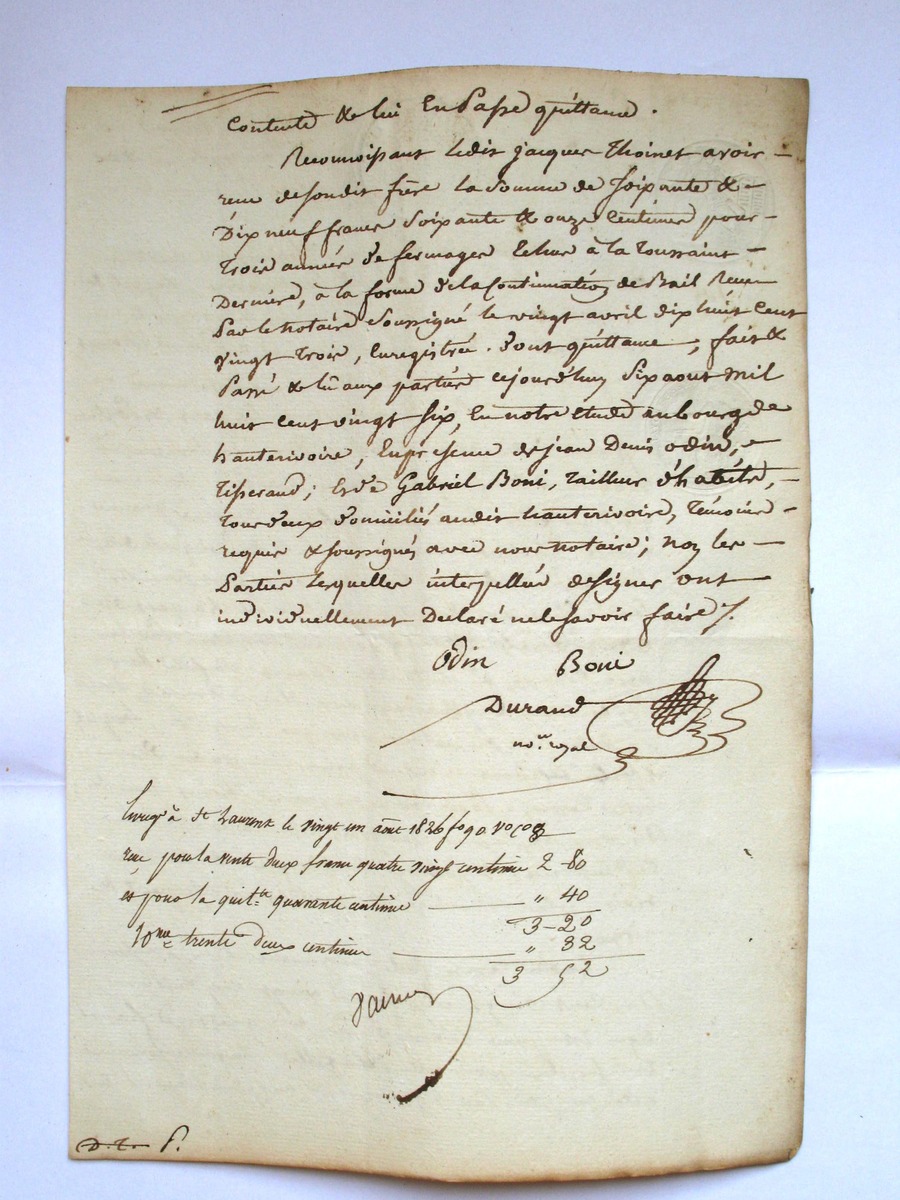 Contente & de lui En Passe quittance.
Reconnoissant ledit jacques Thoinet avoir
recu desondit frere la Somme de Soixante &
Dix neuf francs Soixante & onze Centimes pour
trois années de fermages Echus à la toussaint
Derniere, à la forme dela Continuation de Bail Recue
Par le Notaire Soussigné le vingt avril dix huit Cent
vingt trois, Enregistrée. Dont quittance, fait &
Passé & lû aux parties cejourd'huy Six aout mil
huit Cent vingt Six, En notre etude au bourg de
hauterivoire, En presence de jean Denis odin,
Tisserand; & de Gabriel Boni, Tailleur d'habits,
tous deux domiciliés audit hauterivoire, Témoins
requis & soussignés avec nous notaire; non les
Parties lesquelles interpellées de signer ont
individuellement Declaré ne le savoir faire /.
Odin Boni
Durand
no.re royal
Enreg.é à St Laurent le vingt un aout 1826 fo 90 Vo
recu pour la vente deux francs quatre vingt centimes 2-80
et pour la quit.ce quarante centimes " 40
3-20
10.me trente deux centimes " 32
3 52
D.T. P.